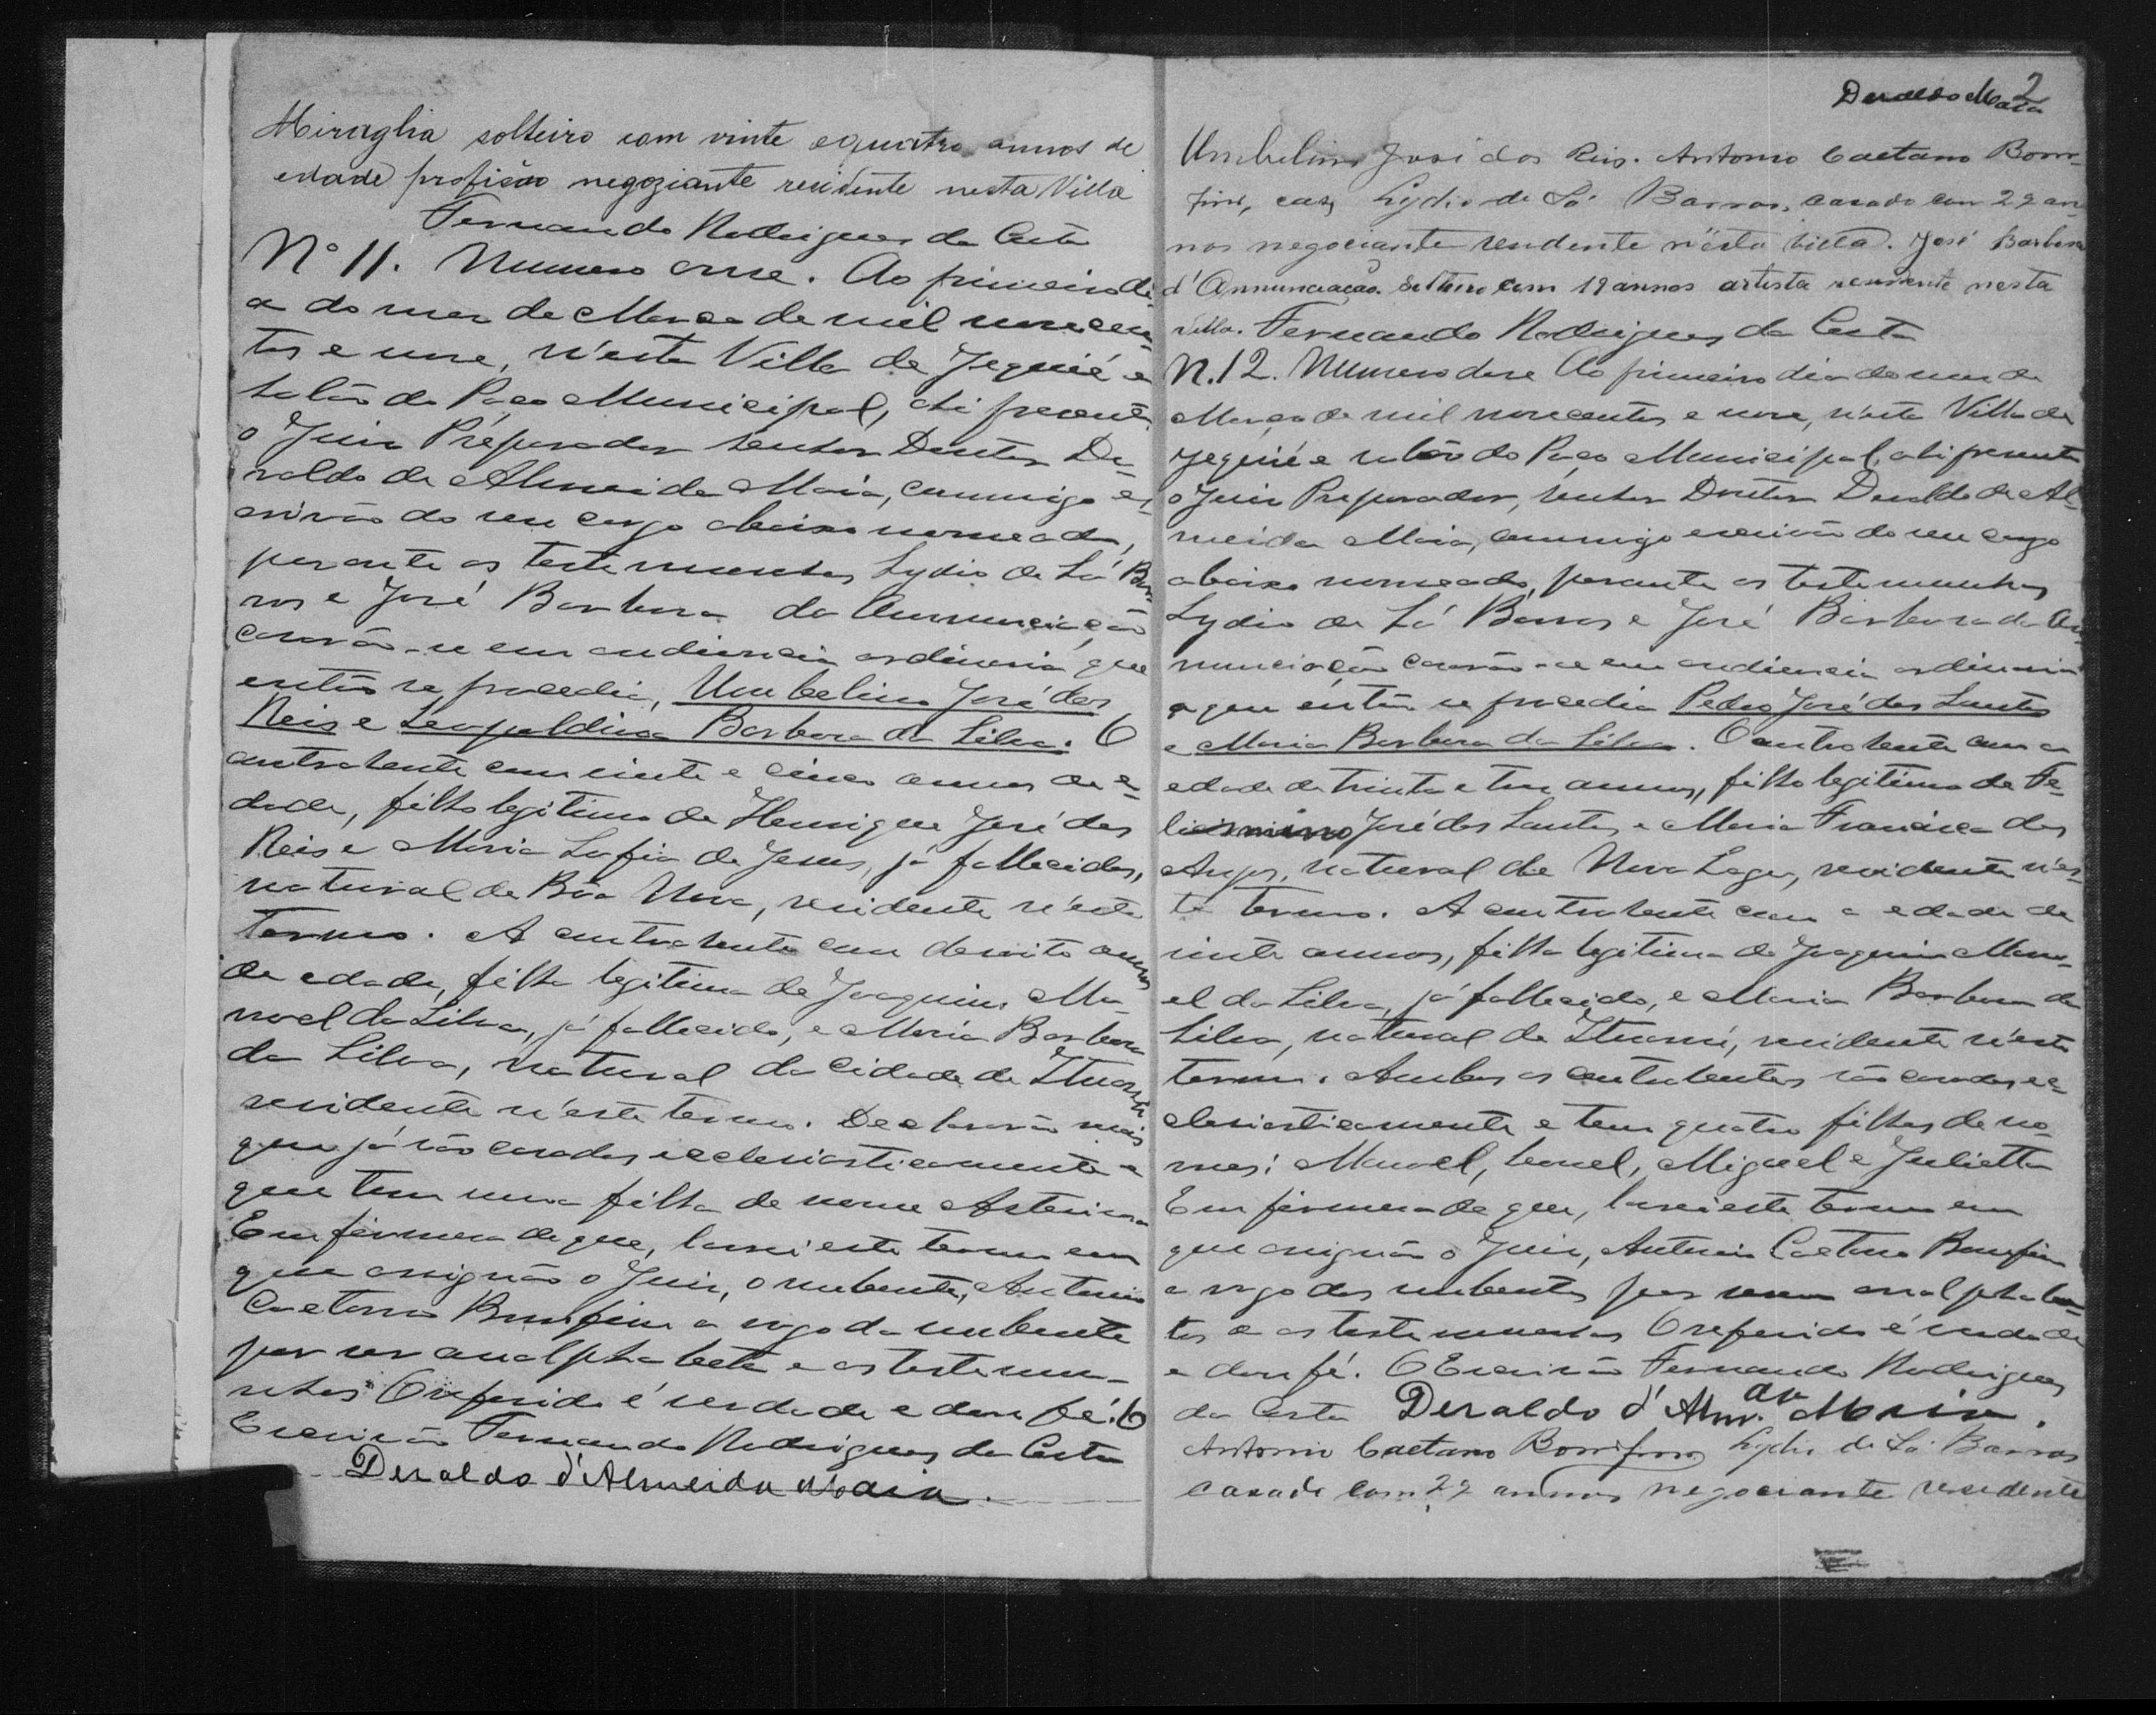 Miraglia solteiro com vinte e quatro annos de
edade profisão negoziante residente nesta Villa
Fernando Rodrigues da Costa
Nº 11. Numero onse. Ao primeiro di-
a do mes de Março de mil novecen-
tos e nove, n'esta Villa de Jequié e
salão do Paço Municipal, ahi presente
o Juiz Préparador Senhor Doutor De-
raldo de Almeida Maia, commigo es-
crivão do seu cargo abaixo nomeado,
perante as testemunhas Lydio de Sá Bar-
ros e José Barbosa da Annunciação
casarão-se em audiencia ordinaria que
então se procedia, Umbelino José dos
Reis e Leopoldina Barbosa da Silva. O
contrahente com vinte e cinco annos de e-
dade, filho legitimo de Henrique José dos
Reis e Maria Sofia de Jesus, já fallecidos,
natural de Bôa Nova, residente n'este
Termo. A contrahente com desoito annos
de edade, filha legitima de Joaquim Ma-
noel da Silva, já fallecido, e Maria Barbosa
da Silva, natural da cidade de Ituassú
residente n'este termo. Declararão mais
que já são casados ecclesiasticamente e
que tem uma filha de nome Asterina
Em firmesa de que, lavrei este termo em
que assignão o Juiz, o nubente, Antonio
Caetano Bomfim a rogo da nubente
por ser analphabeta e as testemu-
nhas O referido é verdade e dou fé. O
Escrivão Fernando Rodrigues da Costa
Deraldo d'Almeida Maia.
2
Deraldo Maia
Umbelino José dos Reis. Antonio Caetano Bom-
fim, Lydio de Sá Barros, casado com 22 an-
nos negociante residente n'ésta villa. José Barbosa
d'Annunciação. Solteiro com 19 annos artista residente nesta
villa. Fernando Rodrigues da Costa
N. 12. Numero dose Ao primeiro dia do mes de
Março de mil novecentos e nove, n'esta Villa de
Jequié e salão do Paço Municipal, ahi presente
o Juiz Preparador, Senhor Doutor Deraldo de Al-
meida Maia, commigo escrivão do seu cargo
abaixo nomeado, perante as testemunhas
Lydio de Sá Barros e José Barbosa da An-
nunciação casarão-se em audiencia ordinaria
a que então se procedia Pedro José dos Santos
e Maria Barbosa da Silva. O contrahente com a
edade de trinta e tres annos, filho legitimo de Fe-
lismino José dos Santos e Maria Francisca dos
Anjos, natural de Nova Lage, residente n'es-
te termo. A contrahente com a edade de
vinte annos, filha legitima de Joaquim Mano-
el da Silva, já fallecido, e Maria Barbosa da
Silva, natural de Ituassú, residente n'este
termo. Ambos os contrahentes são casados ec-
clesiasticamente e tem quatro filhos de no-
mes: Manoel, Leonel, Miguel e Julietta
Em firmesa de que, lavrei este termo em
que assignão o Juiz, Antonio Caetano Bomfim
a rogo dos nubentes por serem analphabe-
tos e as testemunhas O referido é verdade
e dou fé. O Escrivão Fernando Rodrigues
da Costa Deraldo d'Alm.da Maia.
Antonio Caetano Bomfim Lydio de Sá Barros
casado com 22 annos negociante residente